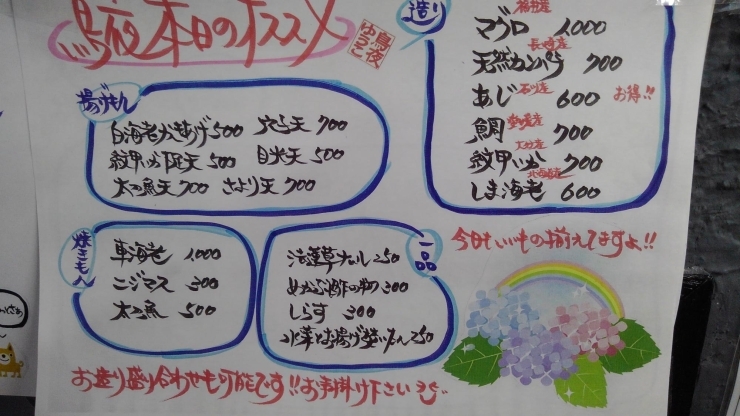 本日のオススメ
鳥夜
ゆうこ
揚げもん
白海老から揚げ 500
穴子天 700
紋甲いか下足天 500
目光天 500
太刀魚天 700
さより天 700
造り
福井産
マグロ 1,000
長崎産
天然カンパチ 700
あじ 石川産 600 お得!!
鯛 愛媛産 700
大分産
紋甲いか 700
北海道産
しま海老 600
焼きもん
車海老 1,000
ニジマス 300
太刀魚 500
一品
法蓮草ナムル 250
めかぶ酢の物 300
しらす 300
水菜とお揚げ炊いたん 250
今日もいいもの揃えてますよ!!
お造り盛り合わせも可能です!!お声掛け下さい